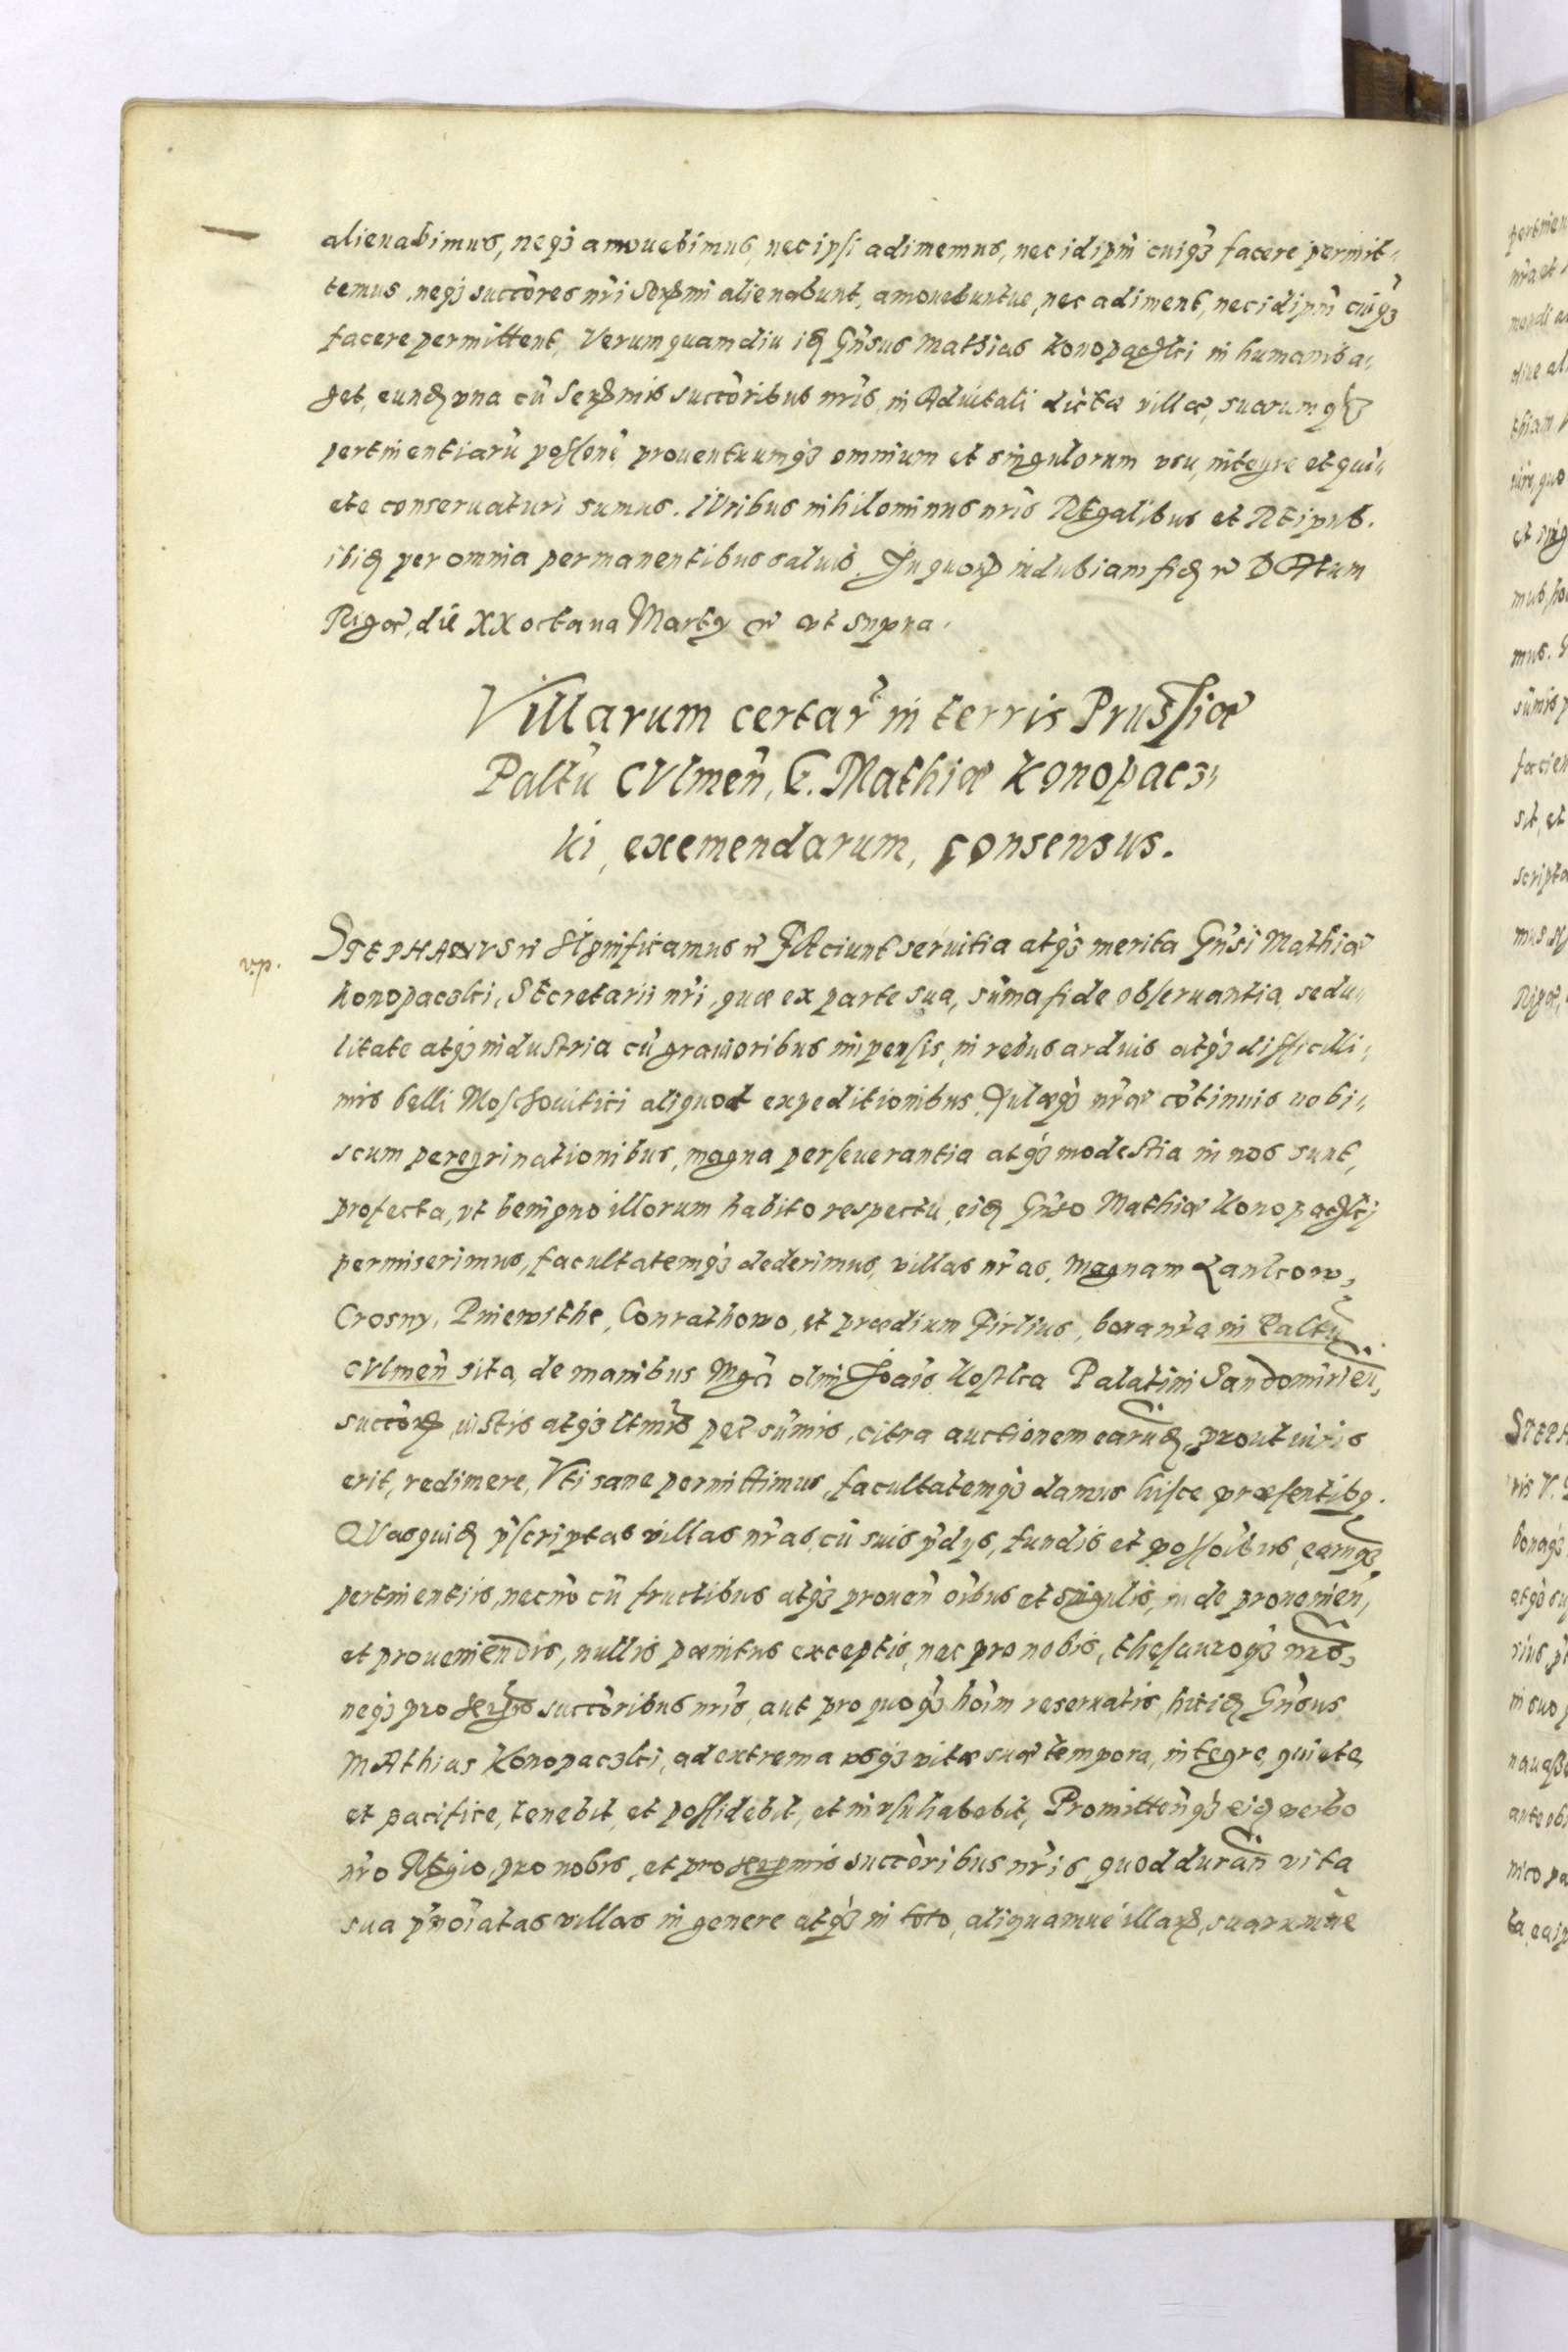 alienabimus, neqȝ amouebimus, nec ipsi adimemus, nec idipm̃ cuiqȝ facere permit„
temus, neqȝ succores nr̃i Serꝑmi alienabunt, amouebuntue, nec adiment, nec idipm̃ cuiqȝ
facere permittent, Verum quamdiu iꝗ Gn̄sus Mathias Konopaczki in humanis a„
get, eunꝗ vna cũ Serꝑmis succoribus nr̃is, in Aduitali dictæ villæ, suarumqȝ
pertinentiarũ possone prouentuumqȝ omnium et singulorum vsu, integre et qui„
ete conseruaturi sumus. IVribus nihilominus nr̃is REgalibus et REipub.
ibiꝗ per omnia permanentibus saluis. In quorꝑ indubiam fiꝗ DAtum
Rigæ, die XX octaua Martij ut supra.
Villarum certar̃ in terris Prussiæ
Paltũ CVlmeñ, G. Mathiæ Konopacz„
ki, exemendarum, consensus.
v.p.
STEPHANVS SIgnificamus FAciunt seruitia atqȝ merita Gn̄si Mathiæ
Konopaczki, SEcretarii nr̃i, quæ ex parte sua, sũma fide obseruantia, sedu„
litate atqȝ industria cũ grauioribus impensis, in rebus arduis atqȝ difficilli„
mis belli Moschouitici aliquot expeditionibus, Aulæqȝ nr̃æ cõtinuis nobi„
scum peregrinationibus, magna perseuerantia atqȝ modestia in nos sunt,
profecta, vt benigno illorum habito respectu, eiꝗ Gn̄so Mathiæ Konopaczkij
permiserimus, facultatemqȝ dederimus, villas nr̃as, Magnam Lankow,
Crosny, Pniewithe, Conrathowo, et prædium Firlius, bona nr̃a in Paltũ
CVlmeñ sita, de manibus Mgci olim Ioañis Kostka Palatini Sandomirieñ,
succorꝑ, iustis atqȝ ltmis per sũmis, citra auctionem earuꝗ, prout iuris
erit, redimere, Vti sane permittimus, facultatemqȝ damus hisce præsentibꝗ.
QVasquiꝗ p̃scriptas villas nr̃as, cũ suis p̃dijs, fundis et possoibus, earũqȝ
pertinentiis, necnõ cũ fructibus atqȝ proueñ oĩbus et singulis, inde proueñieñ,
et proueniendis, nullis pænitus exceptis, nec pro nobis, thesauroqȝ nr̃o,
neqȝ pro serꝑis succoribus nr̃is, aut pro quoqȝ hoĩm reseruatis, hic iꝗ Gn̄sus
MAthias Konopaczki, ad extrema vsqȝ vitæ suæ tempora, integre, quiete,
et pacifice, tenebit, et possidebit, et in vsu habebit, Promitteñqȝ eiꝗ verbo
nr̃o REgio, pro nobis, et pro serꝑmis succoribus nr̃is, quod durañ vita
sua p̃noĩatas villas in genere atqȝ in toto, aliquamue illarꝑ, suarumue